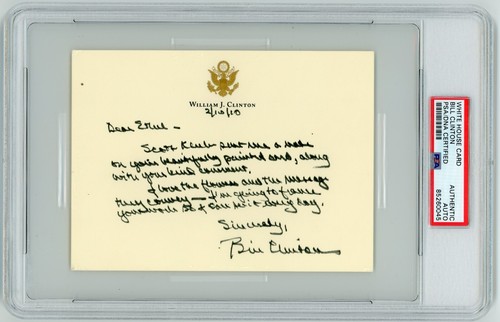 WILLIAM J. CLINTON
2/10/10
Dear
Scott sent me a note
on your beautifully painted card, along
with your kind comment.
I love the flowers and the message
they convey — I'm going to frame
your work so I can see it every day.
Sincerely,
Bill Clinton
WHITE HOUSE CARD
BILL CLINTON
PSA/DNA CERTIFIED
PSA
AUTHENTIC
AUTO
85260045